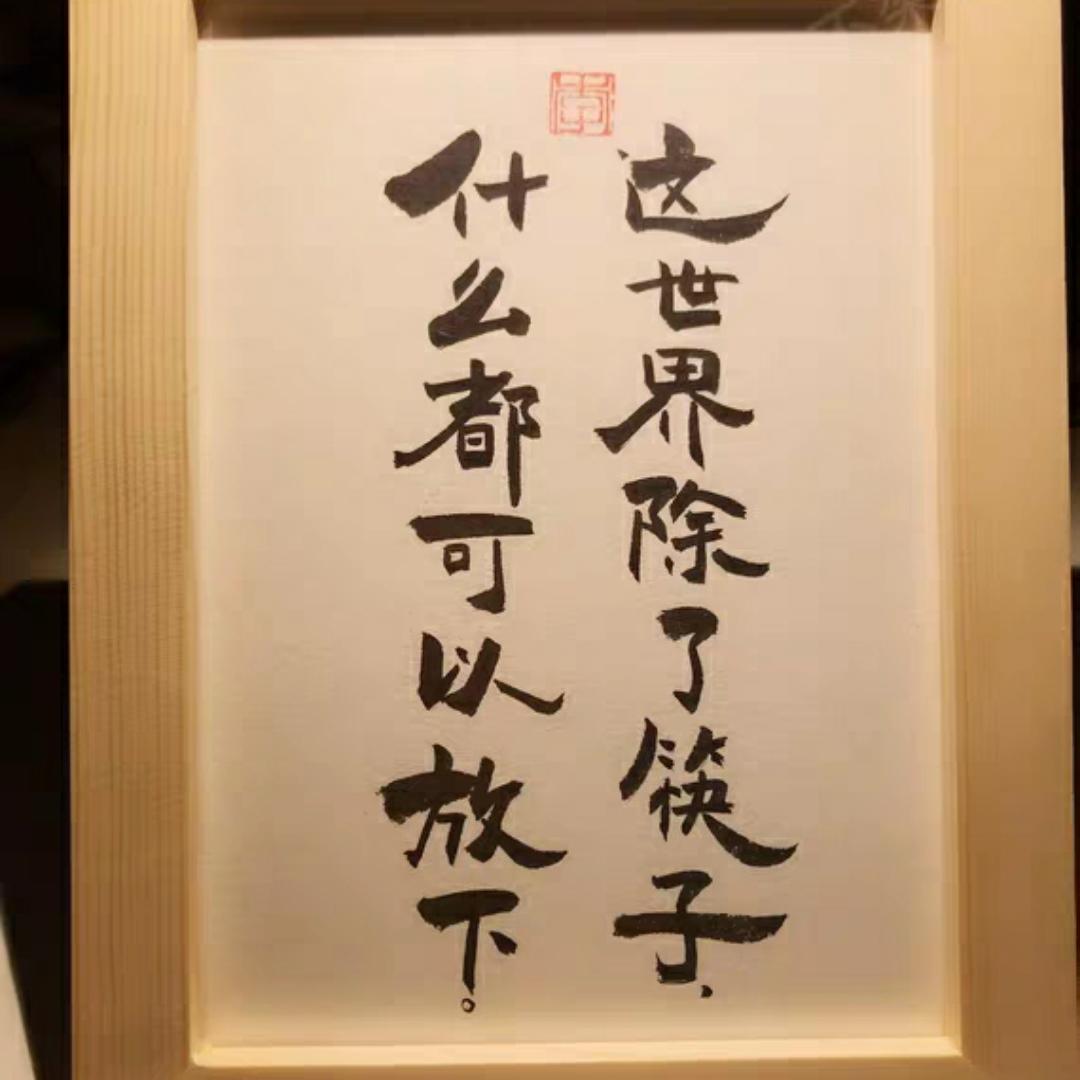 这世界除了筷子,
什么都可以放下。